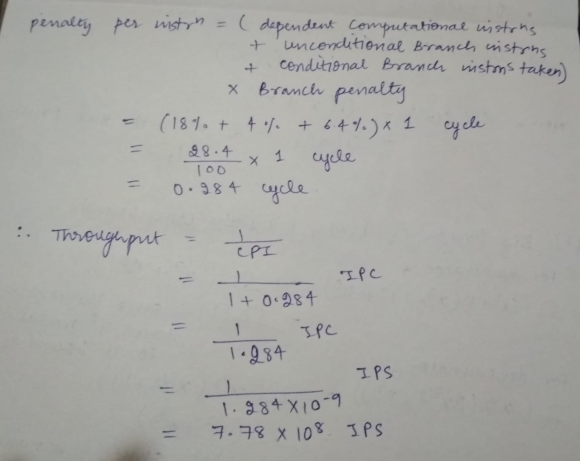 penalty per instrn = ( dependent computational instrns
+ unconditional Branch instrns
+ conditional Branch instrns taken)
× Branch penalty
= (18% + 4% + 6.4%) × 1 cycle
= 28.4/100 × 1 cycle
= 0.284 cycle
∴ Throughput = 1/CPI
= 1/(1 + 0.284) IPC
= 1/1.284 IPC
= 1/(1.284 × 10^-9) IPS
= 7.78 × 10^8 IPS